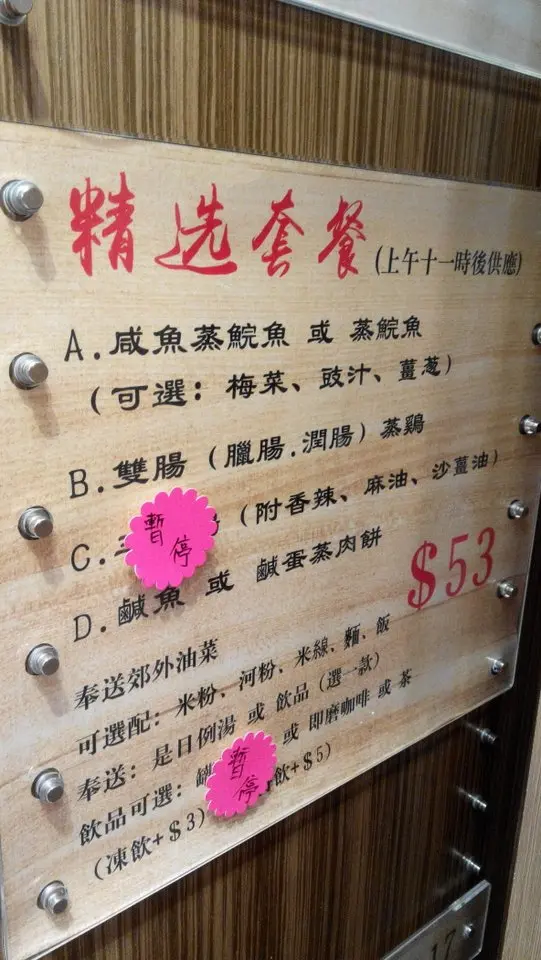 精选套餐 (上午十一時後供應)
A.咸魚蒸鯇魚 或 蒸鯇魚
(可選: 梅菜、豉汁、薑葱)
B.雙腸 (臘腸.潤腸) 蒸鷄
C. (附香辣、麻油、沙薑油)
暫停
D.鹹魚 或 鹹蛋蒸肉餅
$53
奉送郊外油菜
可選配: 米粉、河粉、米線、麵、飯
奉送: 是日例湯 或 飲品 (選一款)
飲品可選: 或 即磨咖啡 或 茶
暫停
(凍飲+$3) 飲+$5)
17